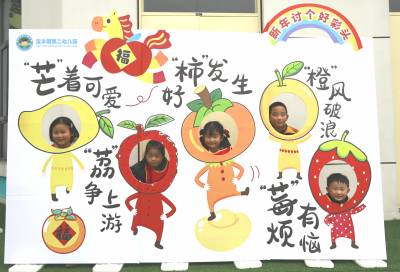 第二幼儿园
新年讨个好彩头
福
"芒"着可爱
好"柿"发生
"橙"风破浪
"荔"争上游
"莓"有烦恼
福